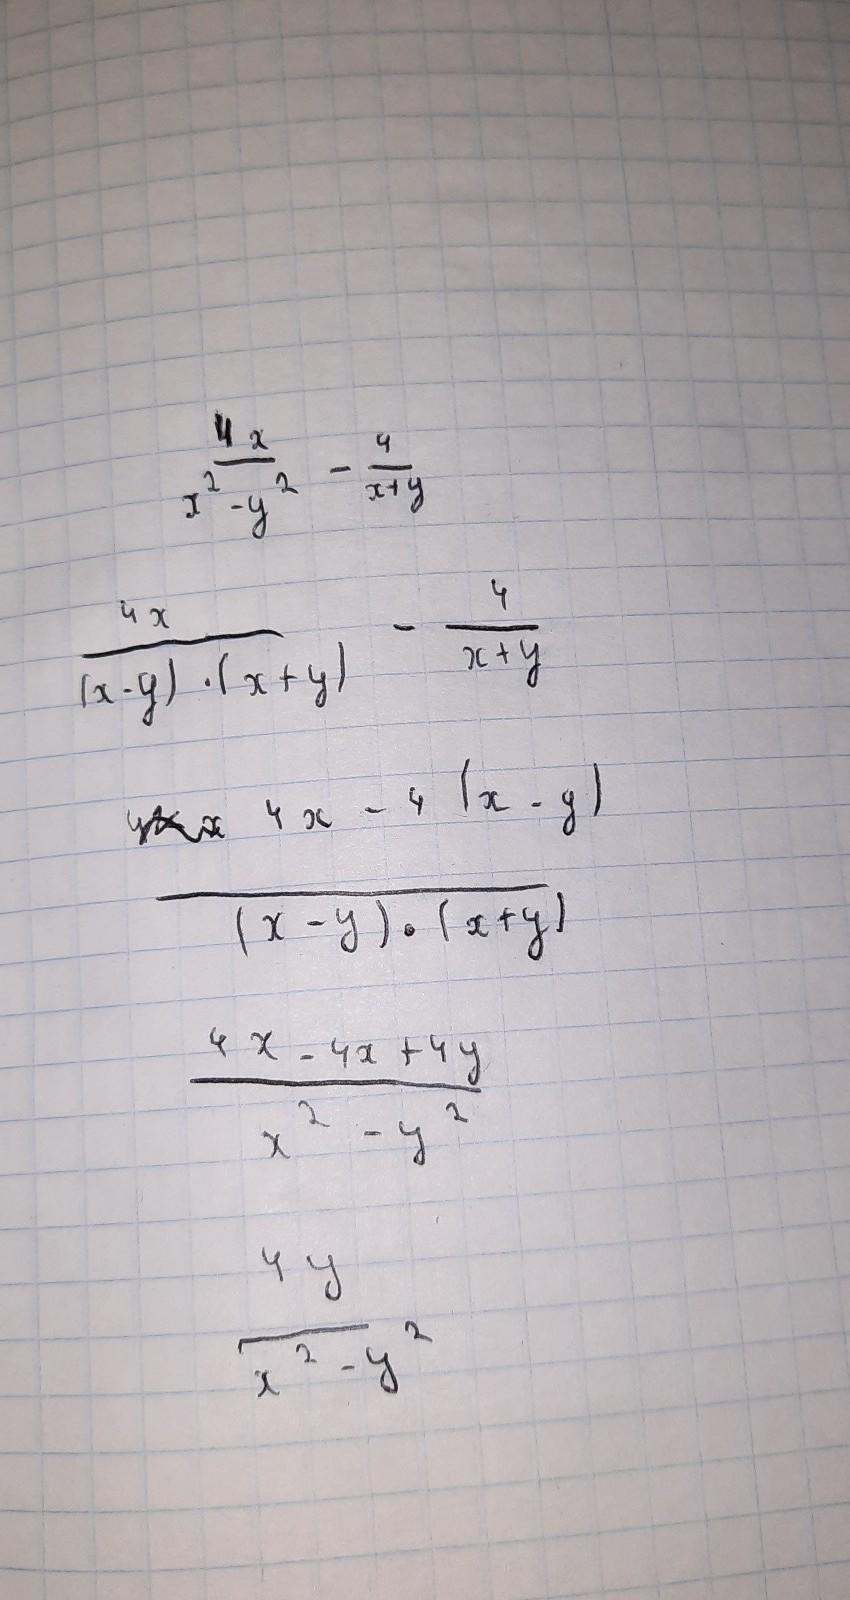 4x/(x² - y²) - 4/(x+y)
4x/((x-y)·(x+y)) - 4/(x+y)
4x - 4(x-y)
(x-y)·(x+y)
4x - 4x + 4y
x² - y²
4y
x² - y²